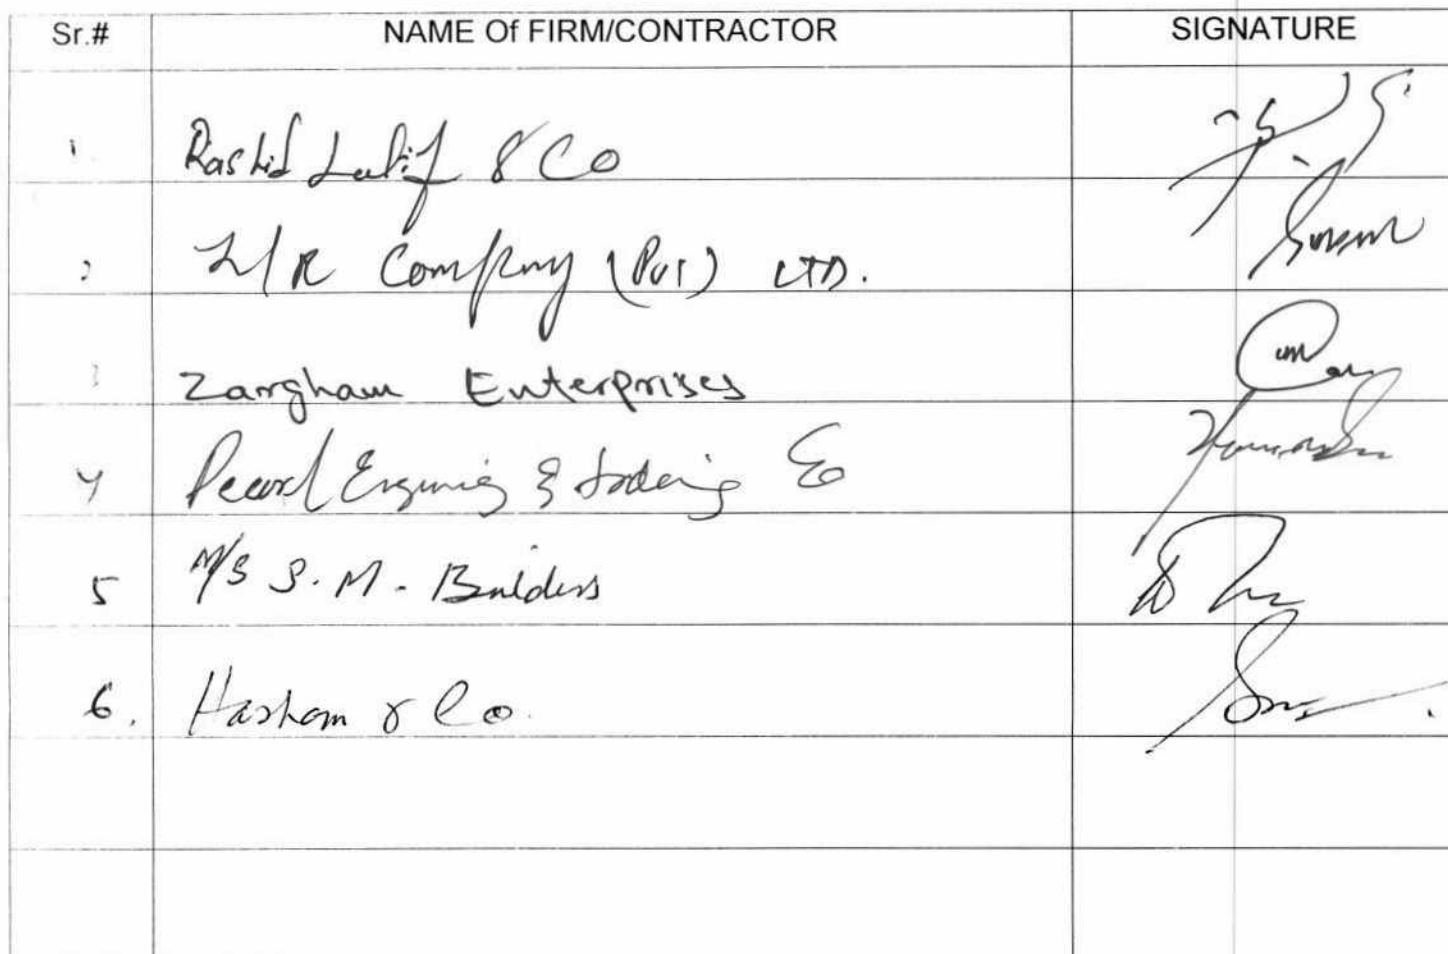 Sr.# NAME Of FIRM/CONTRACTOR SIGNATURE
1. Rashid Latif & Co
2 Company (Pvt) LTD.
3 Zargham Enterprises
4 Pearl & Trading Co
5 M/S S.M. Builders
6. Hasham & Co.